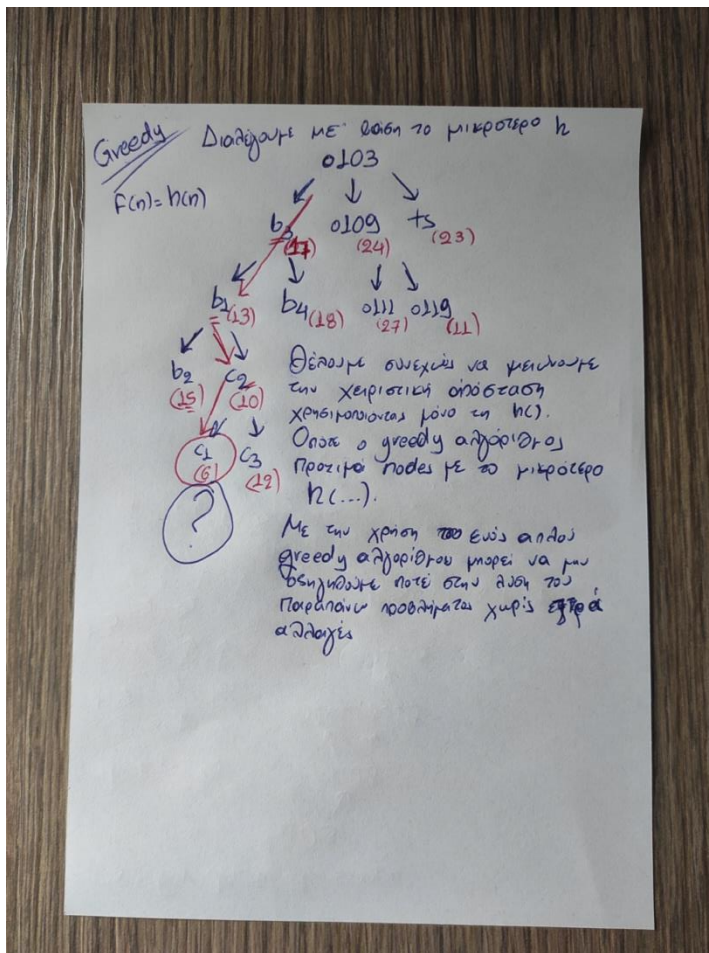 Greedy Διαλέγουμε με βάση το μικρστερο h
F(n)=h(n)
o103
b3 o109 ts
(17) (24) (23)
b1 (13) b4 (18) o111 o119
(27) (11)
b2 c2
(15) (10)
c1 c3
(6) (12)
?
Θέλουμε συνεχώς να μειώνουμε
την χειριστική απόσταση
χρησιμοποιώντας μόνο τη h().
Οποτε ο greedy αλγόριθμος
Προτιμά nodes με το μικρότερο
h(...).
Με την χρήση ενός απλού
greedy αλγορίθμου μπορεί να μην
οδηγηθούμε ποτέ στην λύση του
Παραπάνω προβλήματος χωρίς έξτρα
αλλαγές